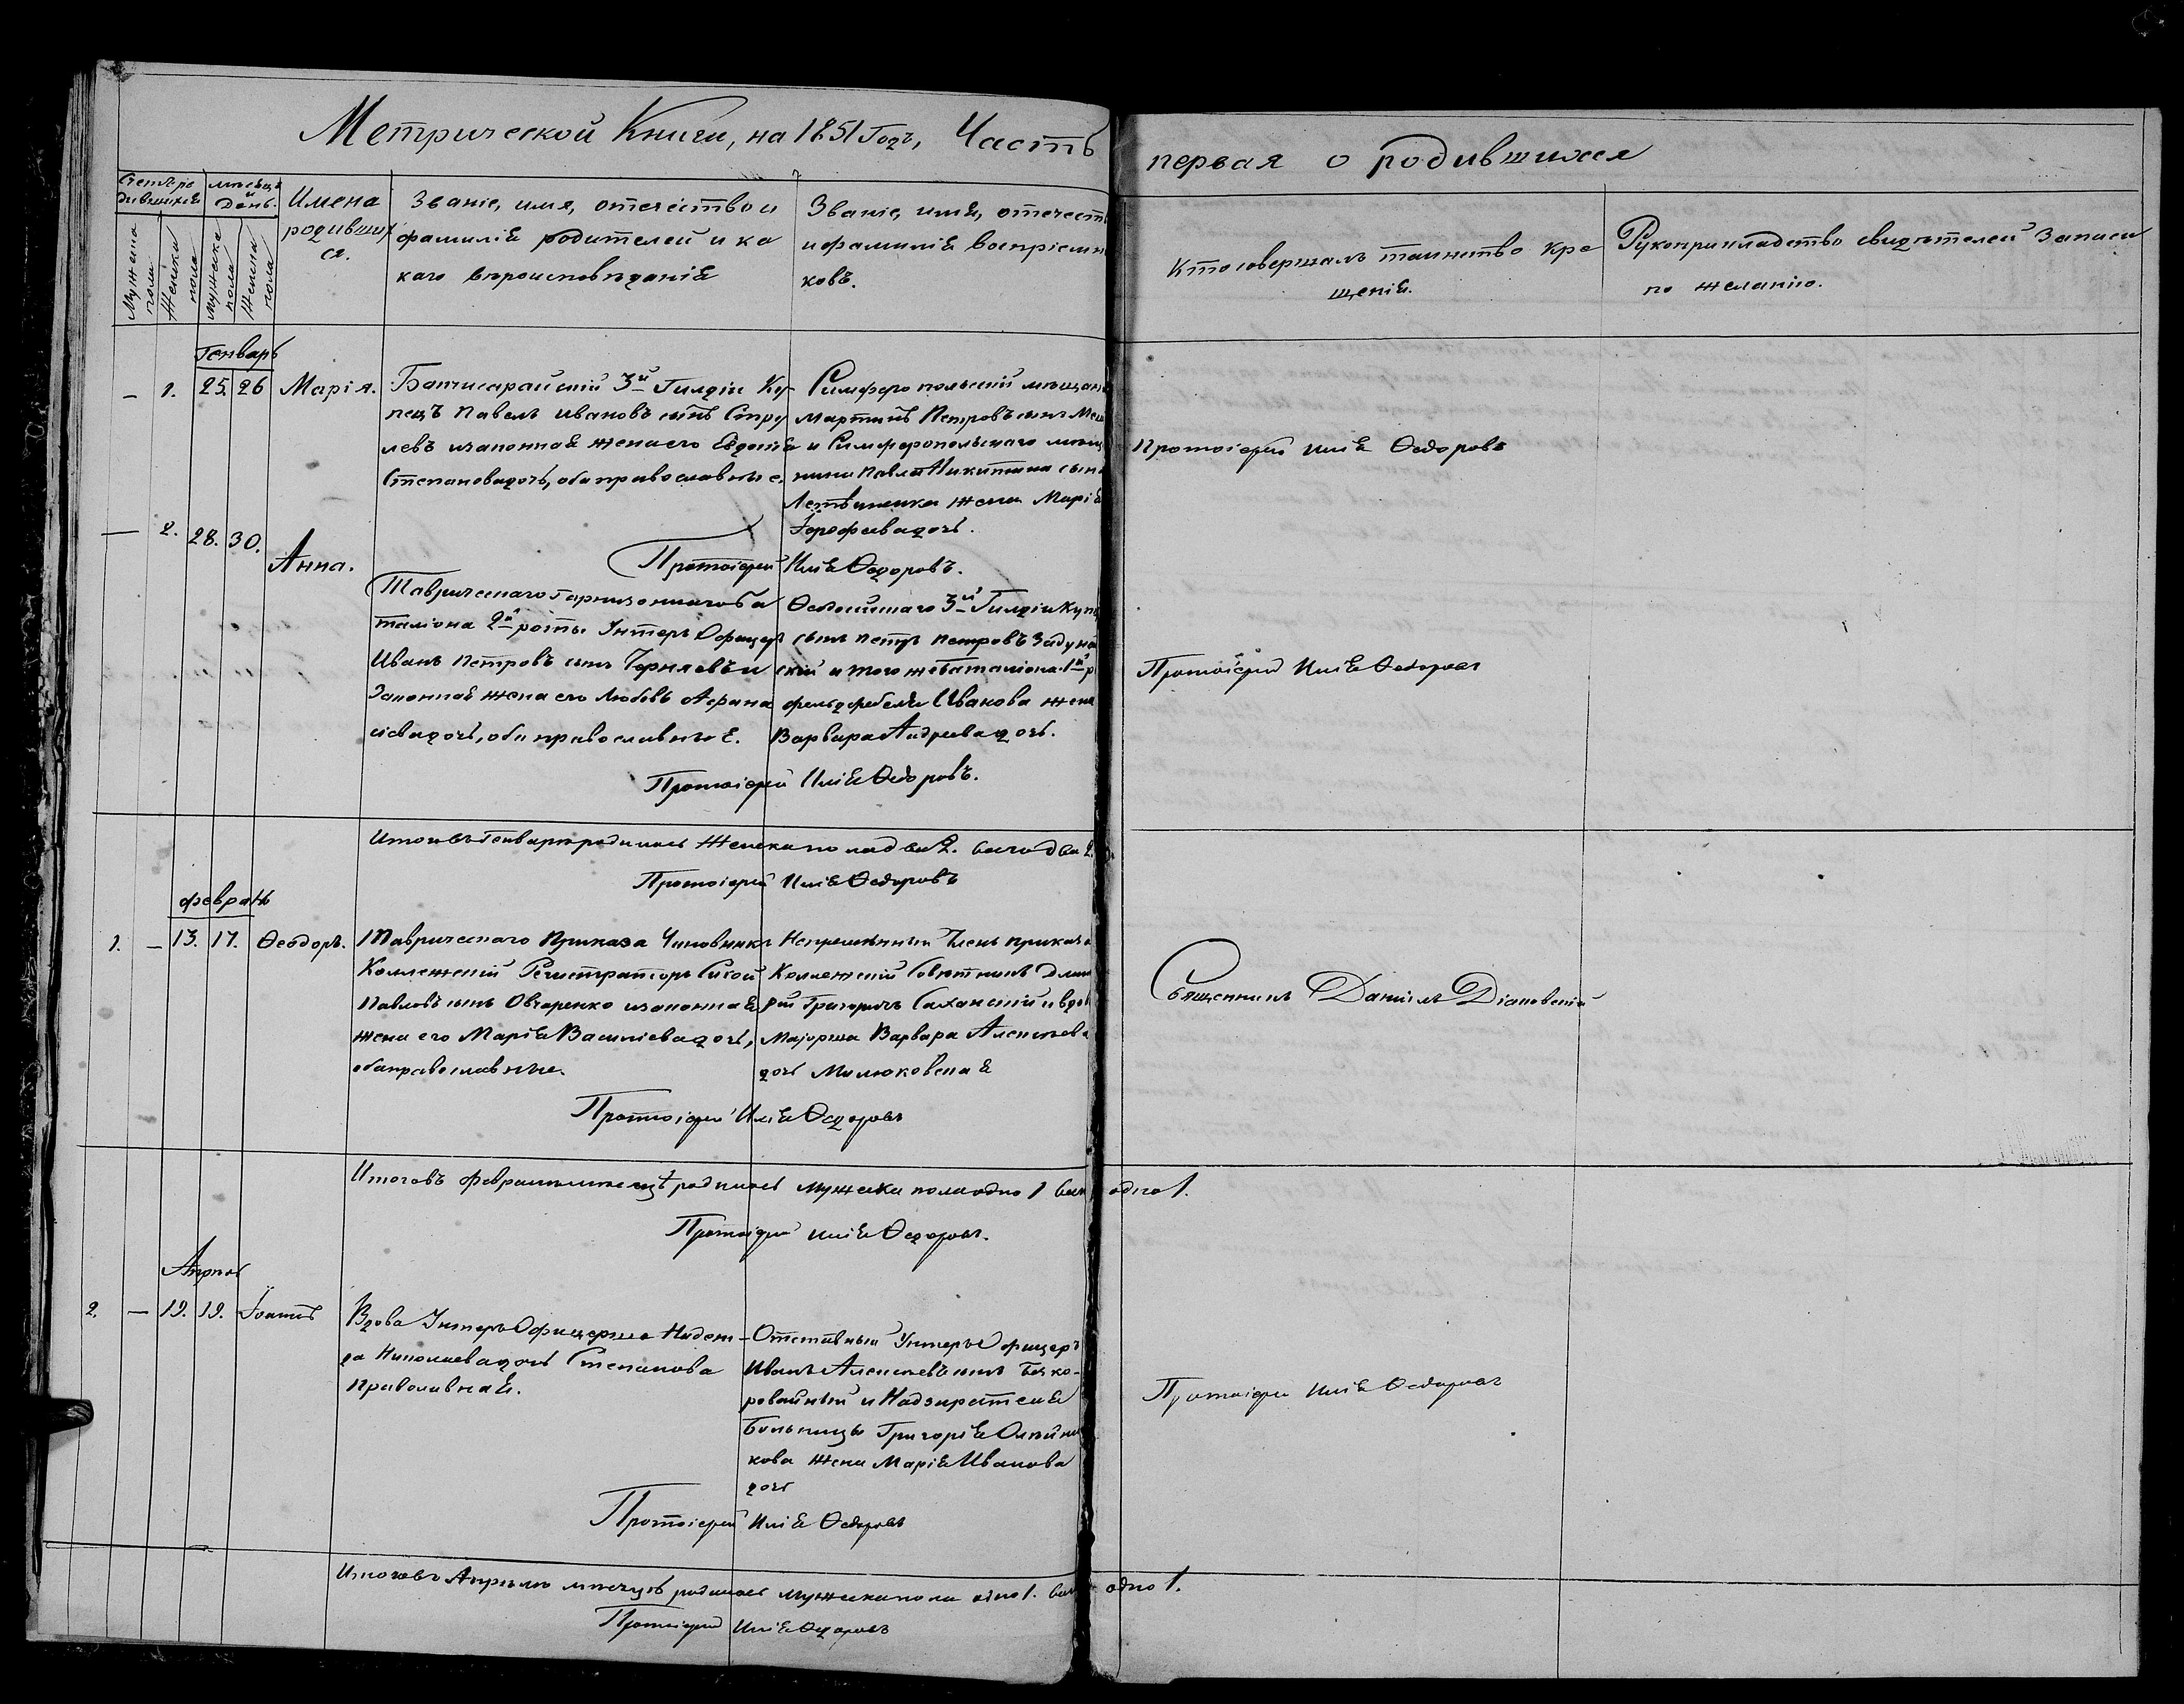 Метрической Книги, на 1851 Годъ, Часть первая о родившихся
Счетъ ро
дившихся
мѣсяцъ
и
День.
Мужеска
пола
Женска
пола
Мужеска
пола
Женска
пола
Имена
родивших
ся.
Званіе, имя, отечество и
фамилія родителей и ка
каго вѣроисповѣданія
Званіе, имя, отечест
и фамилія воспріемн
ковъ.
Кто совершалъ таинство кре
щенія.
Рукоприкладство свидѣтелей записи
по желанію.
Генварь
– 1. 25. 26 Марія.
Бахчисарайскій 3й Гилдіи Ку
пецъ Павелъ Ивановъ сынъ
левъ изаконная жена его Евдокія
Степановадочь, оба православные.
Симферопольскій мѣщан
Мартинъ Петровъ сынъ
и Симферопольскаго мѣщ
нина Павла Никитина сына
жена Марія
дочь.
Протоіерей Илія Ѳедоровъ.
Протоіерей Илія Ѳедоровъ
— 2. 28. 30. Анна.
Таврическаго гарнизоннагоба
таліона 2й роты Унтеръ Офицеръ
Иванъ Петровъ сынъ Черняевъ и
Законная жена его Любовь Афана
сіевадочь, оба православные.
Ѳеодосійскаго 3й Гилдіи Купц
сынъ Петръ Петровъ Задунай
скій и того жебаталіона 1й р
фельдфебеля Иванова жена
Варвара Андреева дочь.
Протоіерей Илія Ѳедоровъ.
Протоіерей Илія Ѳедоровъ
Итого въ Генварѣ родилось Женска пола два 2. всего два 2.
Протоіерей Илія Ѳедоровъ
Февраль
1. – 13. 17. Ѳеодоръ.
Таврическаго Приказа Чиновникъ
Коллежскій Регистраторъ Сысой
Павловъ сынъ Овчаренко изаконная
жена его Марія Василіевадочь,
обаправославные.
Непремѣнный Членъ приказа
Коллежскій Совѣтникъ Дмит
рій Григоричъ и вдов
Маіорша Варвара Алексѣева
дочь Милюковская
Протоіерей Илія Ѳедоровъ
Священникъ Даніилъ
Итого въ Февралѣ мѣсяцѣ родилось мужеска пола одно 1 всего одно 1.
Протоіерей Илія Ѳедоровъ.
Апрѣль
2. — 19. 19. Іоаннъ
Вдова Унтеръ Офицерша Надеж
да Николаевадочь Степанова
Православная.
Отставный Унтеръ Офицеръ
Иванъ Алексѣевъ сынъ Беско-
ровайный и Надзирателя
Больницы Григорія Олѣйни
кова жена Марія Иванова
дочь
Протоіерей Илія Ѳедоровъ
Протоіерей Илія Ѳедоровъ
Итого въ Апрѣлѣ мѣсяцѣ родилось мужеска пола одно 1. всего одно 1.
Протоіерей Илія Ѳедоровъ